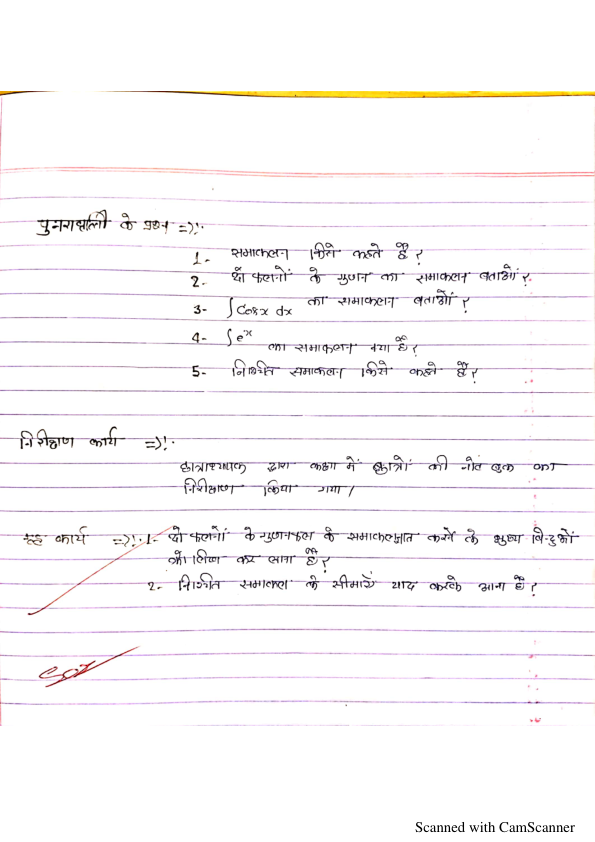 पुनरावृत्ति के प्रश्न =):·
1- समाकलन किसे कहते है ?
2- दो फलनों के गुणन का समाकलन बताओं ?
3- ∫Cosx dx का समाकलन बताओं ?
4- ∫e^x का समाकलन क्या है ?
5- निश्चित समाकलन किसे कहते है ?
निरीक्षण कार्य =):·
छात्राध्यापक द्वारा कक्षा में छात्रों की नोट बुक का
निरीक्षण किया गया /
गृह कार्य =):·1- दो फलनों के गुणनफल के समाकलन ज्ञात करने के मुख्य बिन्दुओं
को लिख कर लाना है ?
2- निश्चित समाकल के सीमाएँ याद करके आना है ?
Scanned with CamScanner